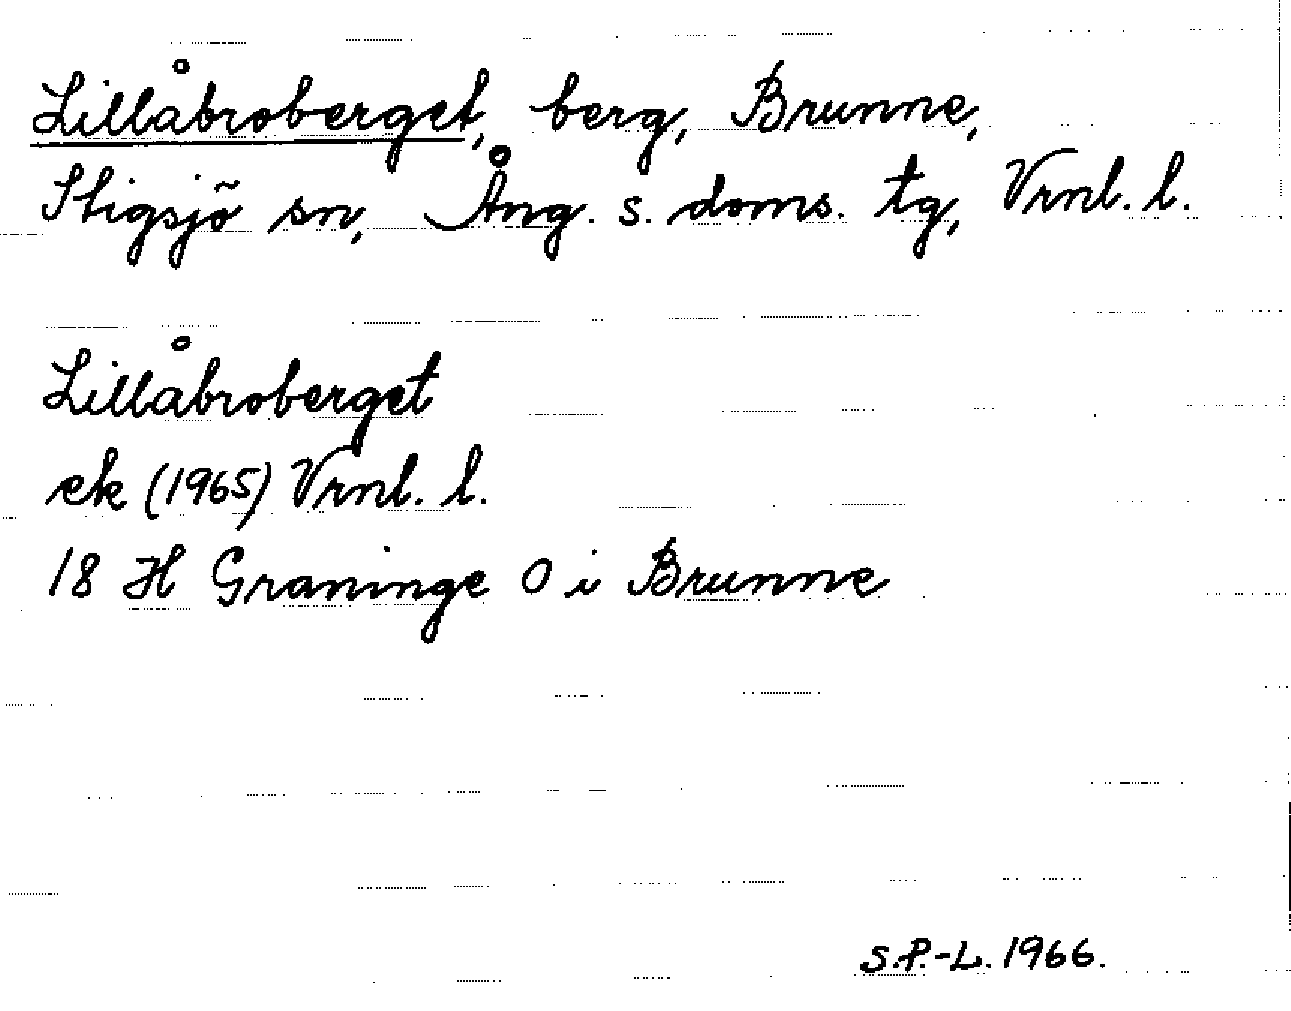 Lillåbroberget, berg, Brunne,
Stigsjö sn, Ång. s. doms. tg, Vrnl. l.
Lillåbroberget
ek (1965) Vrnl. l.
18 H Graninge O i Brunne
S.P.-L. 1966.